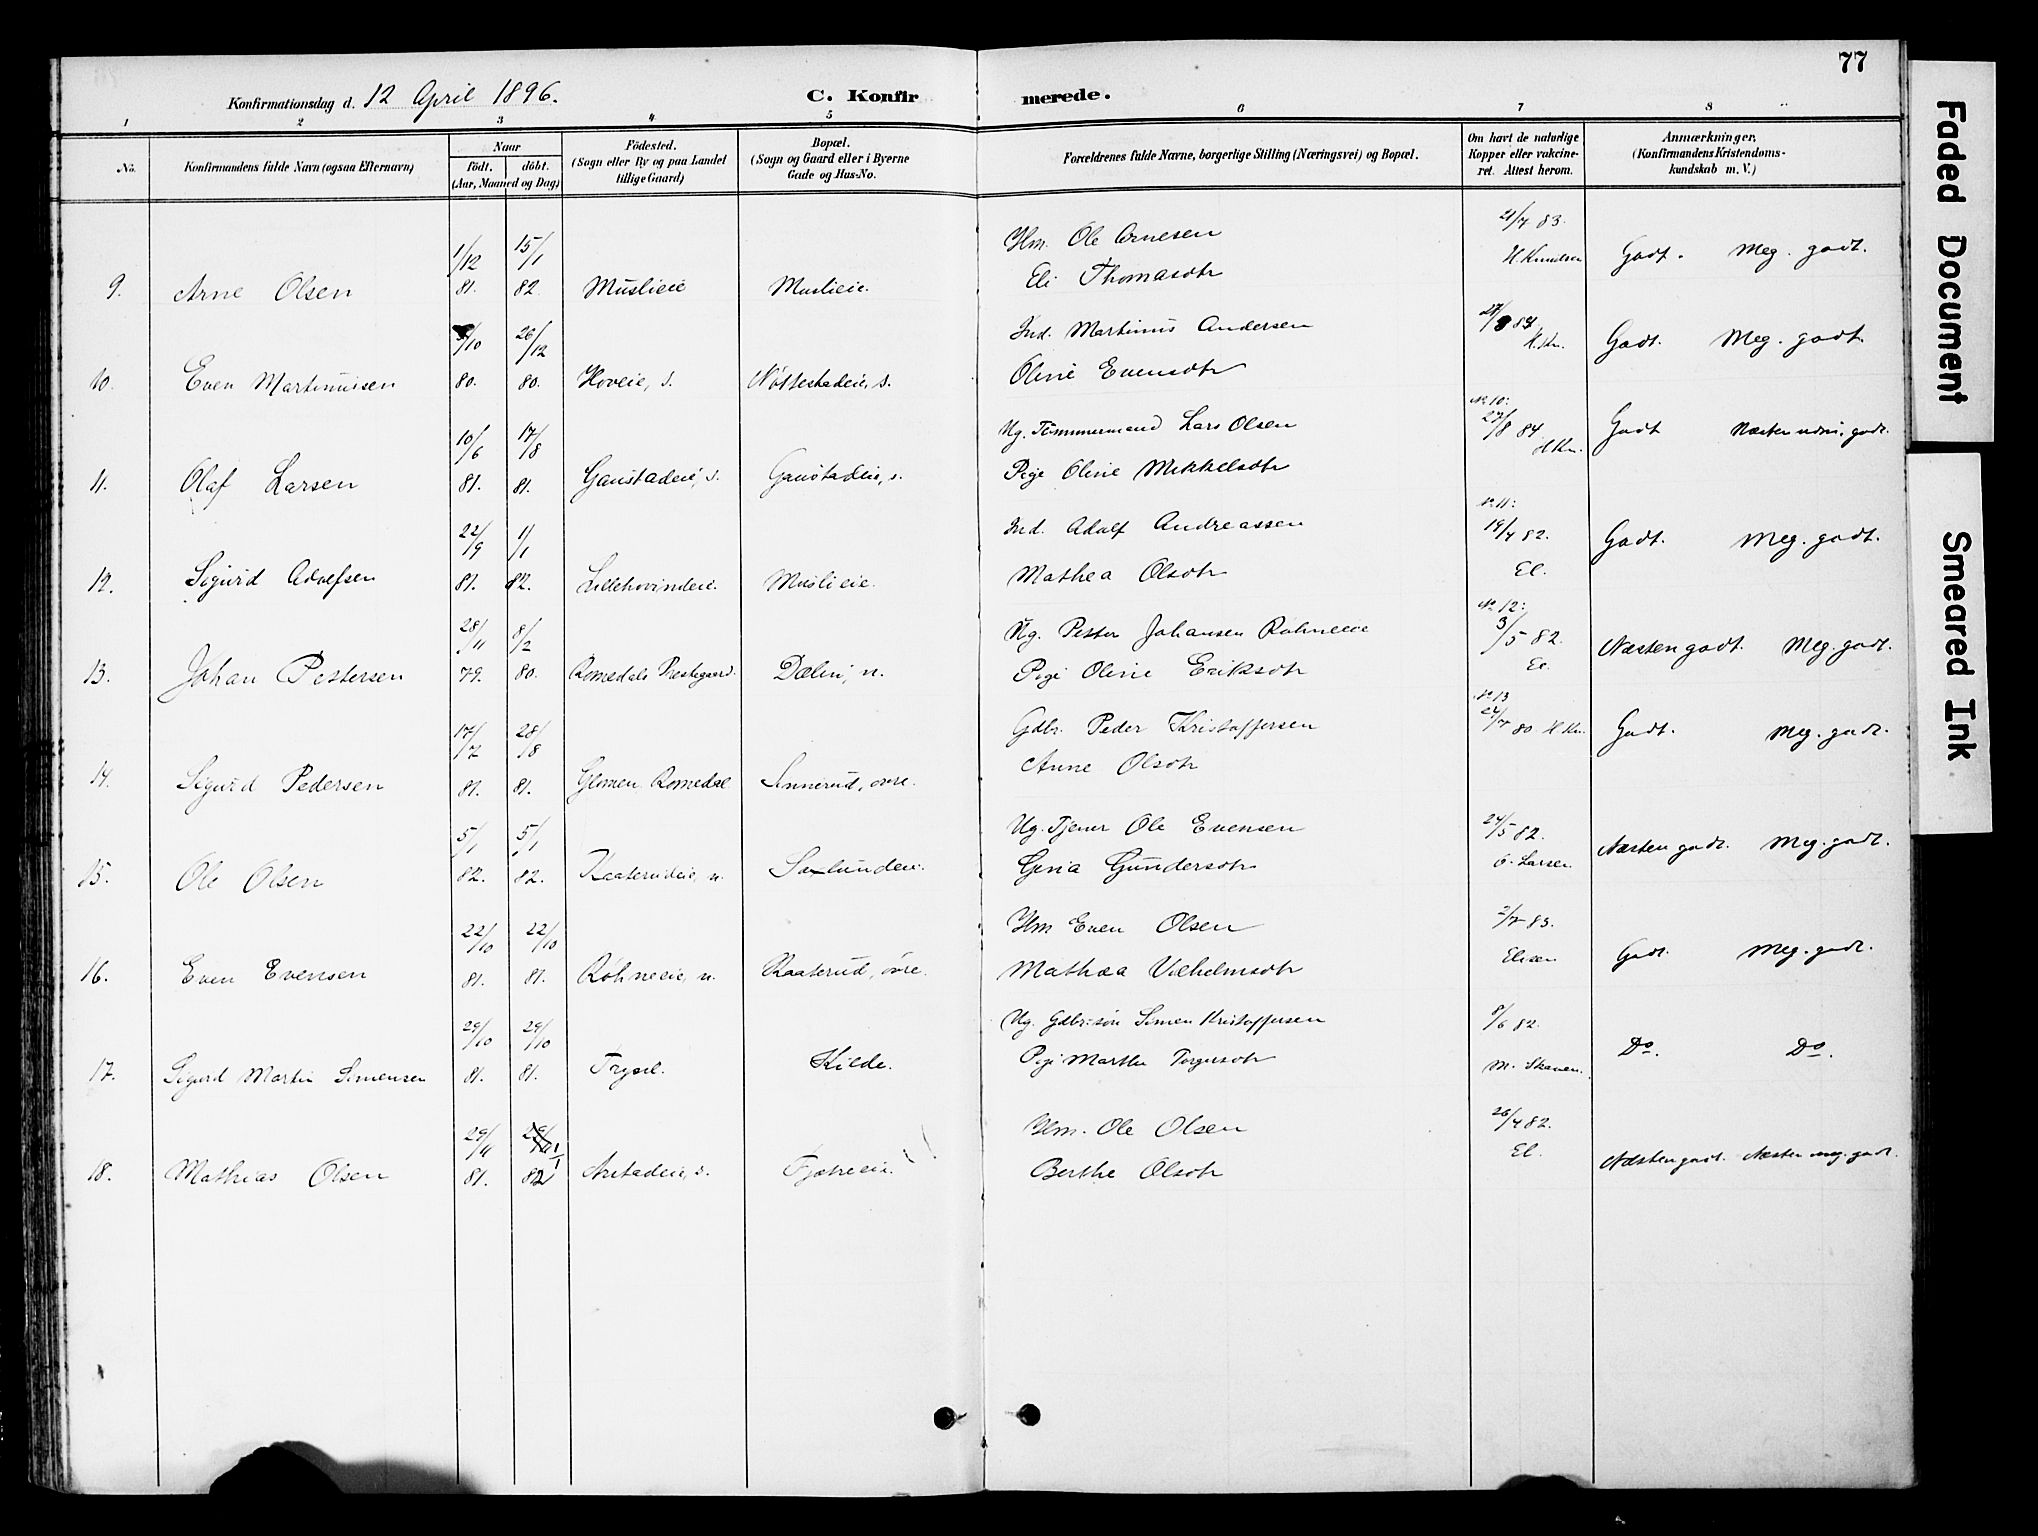 77
Konfirmationsdag d. 12 April 1896. C. Konfirmerede.
1 2 3 4 5 6 7 8
No. Konfirmandens fulde Navn (ogsaa Efternavn) Naar født. døbt. (Aar, Maaned og Dag) Födested. (Sogn eller By og paa Landet tillige Gaard) Bopæl. (Sogn og Gaard eller i Byerne Gade og Hus-No. Forældrenes fulde Navne, borgerlige Stilling (Næringsvei) og Bopæl. Om havt de naturlige Kopper eller vakcineret. Attest herom. Anmærkninger. (Konfirmandens Kristendomskundskab m. V.)
9. Arne Olsen 1/12 81. 15/1 82 Muslieie Muslieie. Hm. Ole Arnesen
Eli Thomasdtr 21/4 83. H Knudsen Godt. Meg. godt.
10. Even Martinusen /10 80. 26/12 80. Hoveie, s. Nøttestadeie, s. Ind. Martinus Andersen
Oline Evensdtr H. Kn. Godt. Meg. godt.
11. Olaf Larsen 10/6 81. 17/8 81. Gaustadeie, s. Gaustadeie, s. Ug. Tömmermand Lars Olsen
Pige Oline Mikkelsdtr No 10: 27/8 84 H Kn. Godt Næsten udm. godt.
12. Sigurd Adolfsen 22/9 81. 1/1 82. Lillehovindeie. Muslieie. Ind. Adolf Andreassen
Mathea Olsdtr No 11: 19/4 82. El. Godt. Meg. godt.
13. Johan Pettersen 28/11 79. 8/2 80. Romedals Prestegaard. Dælin, n. Ug. Petter Johansen Rohneeie
Pige Oline Eriksdtr No 12: 3/5 82. El. Næsten godt. Meg. godt.
14. Sigurd Pedersen 17/7 81. 28/8 81. Glomen Romedal Sinnerud, øvre. Gdbr. Peder Kristoffersen
Anne Olsdtr No 13 24/7 80 H Kn. Godt. Meg. godt.
15. Ole Olsen 5/1 82. 5/1 82. Raaterudeie, n. Sælundeie. Ug. Tjener Ole Evensen
Gina Gundersdtr 24/5 82. O. Larsen Næsten godt. Meg. godt.
16. Even Evensen 22/10 81. 22/10 81. Røhneeie, n. Raaterud, övre. Hm Even Olsen
Mathea Vilhelmsdtr 2/7 83. Elisen Godt. Meg. godt.
17. Sigurd Martin Simensen 29/10 81. 29/10 81. Trysil. Kilde. Ug. Gdbr.søn Simen Kristoffersen
Pige Marthe Torgersdtr 8/6 82. M. Skaven. Do. Do.
18. Mathias Olsen 29/11 81. 1/1 82 Arstadeie, s. Fjetreeie. Hm. Ole Olsen
Berthe Olsdtr 26/4 82. El. Næsten godt. Næsten meg. godt.
Faded Document
Smeared Ink